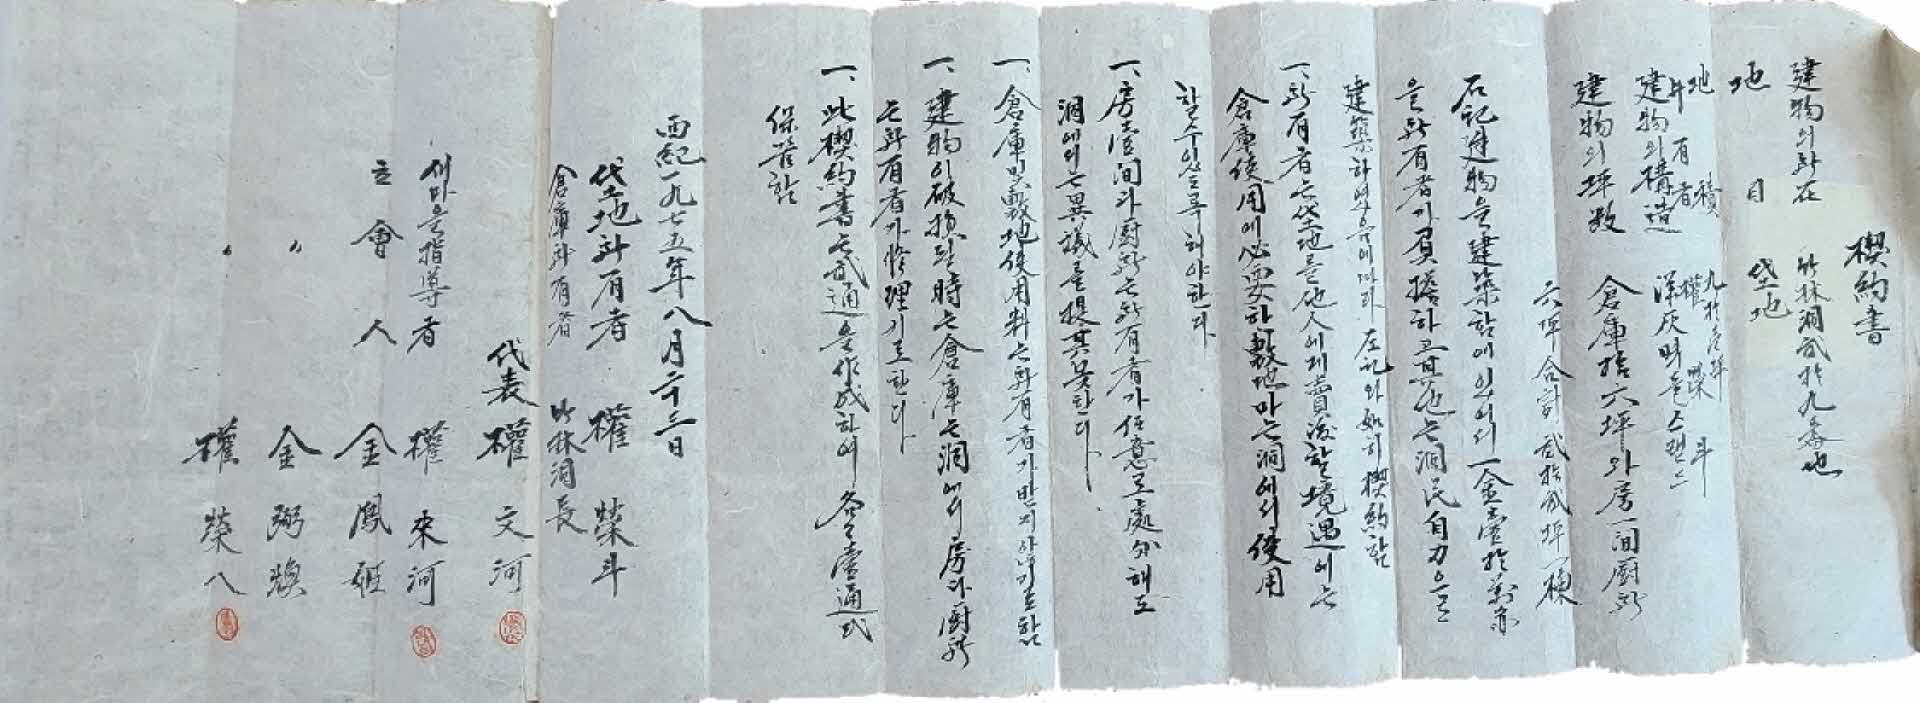 契約書
建物의所在 竹林洞弐拾九番地
地目 垈地
地積 九拾壱坪
所有者 權榮斗
建物의構造 洋灰벽돌스랩드
建物의坪数 倉庫拾六坪와房一间厨所
六坪 合計弐拾弐坪一棟
右記建物을建築함에있어서一金壱拾萬원
을所有者가負擔하고其他는洞民自力으로
建築하였음에따라左記와如히契約함
一、所有者는垈地를他人에게賣渡할境遇에는
倉庫使用에必要한敷地마는洞에서使用
할수있도록해야한다
一、房壱间과厨所는所有者가任意로處分해도
洞에서는異議를提其못한다
一、倉庫및敷地使用料는所有者가받지아니기로함
一、建物이破損될時는倉庫는洞에서房과厨所
는所有者가修理기로한다
一、此契約書는弐通을作成하여各壱通式
保管함
西紀一九七五年八月二十三日
垈地所有者 權榮斗
倉庫所有者 竹林洞長
代表 權文河
새마을指導者 權來河
立會人 金鳳姬
〃 金弼煥
〃 權榮八